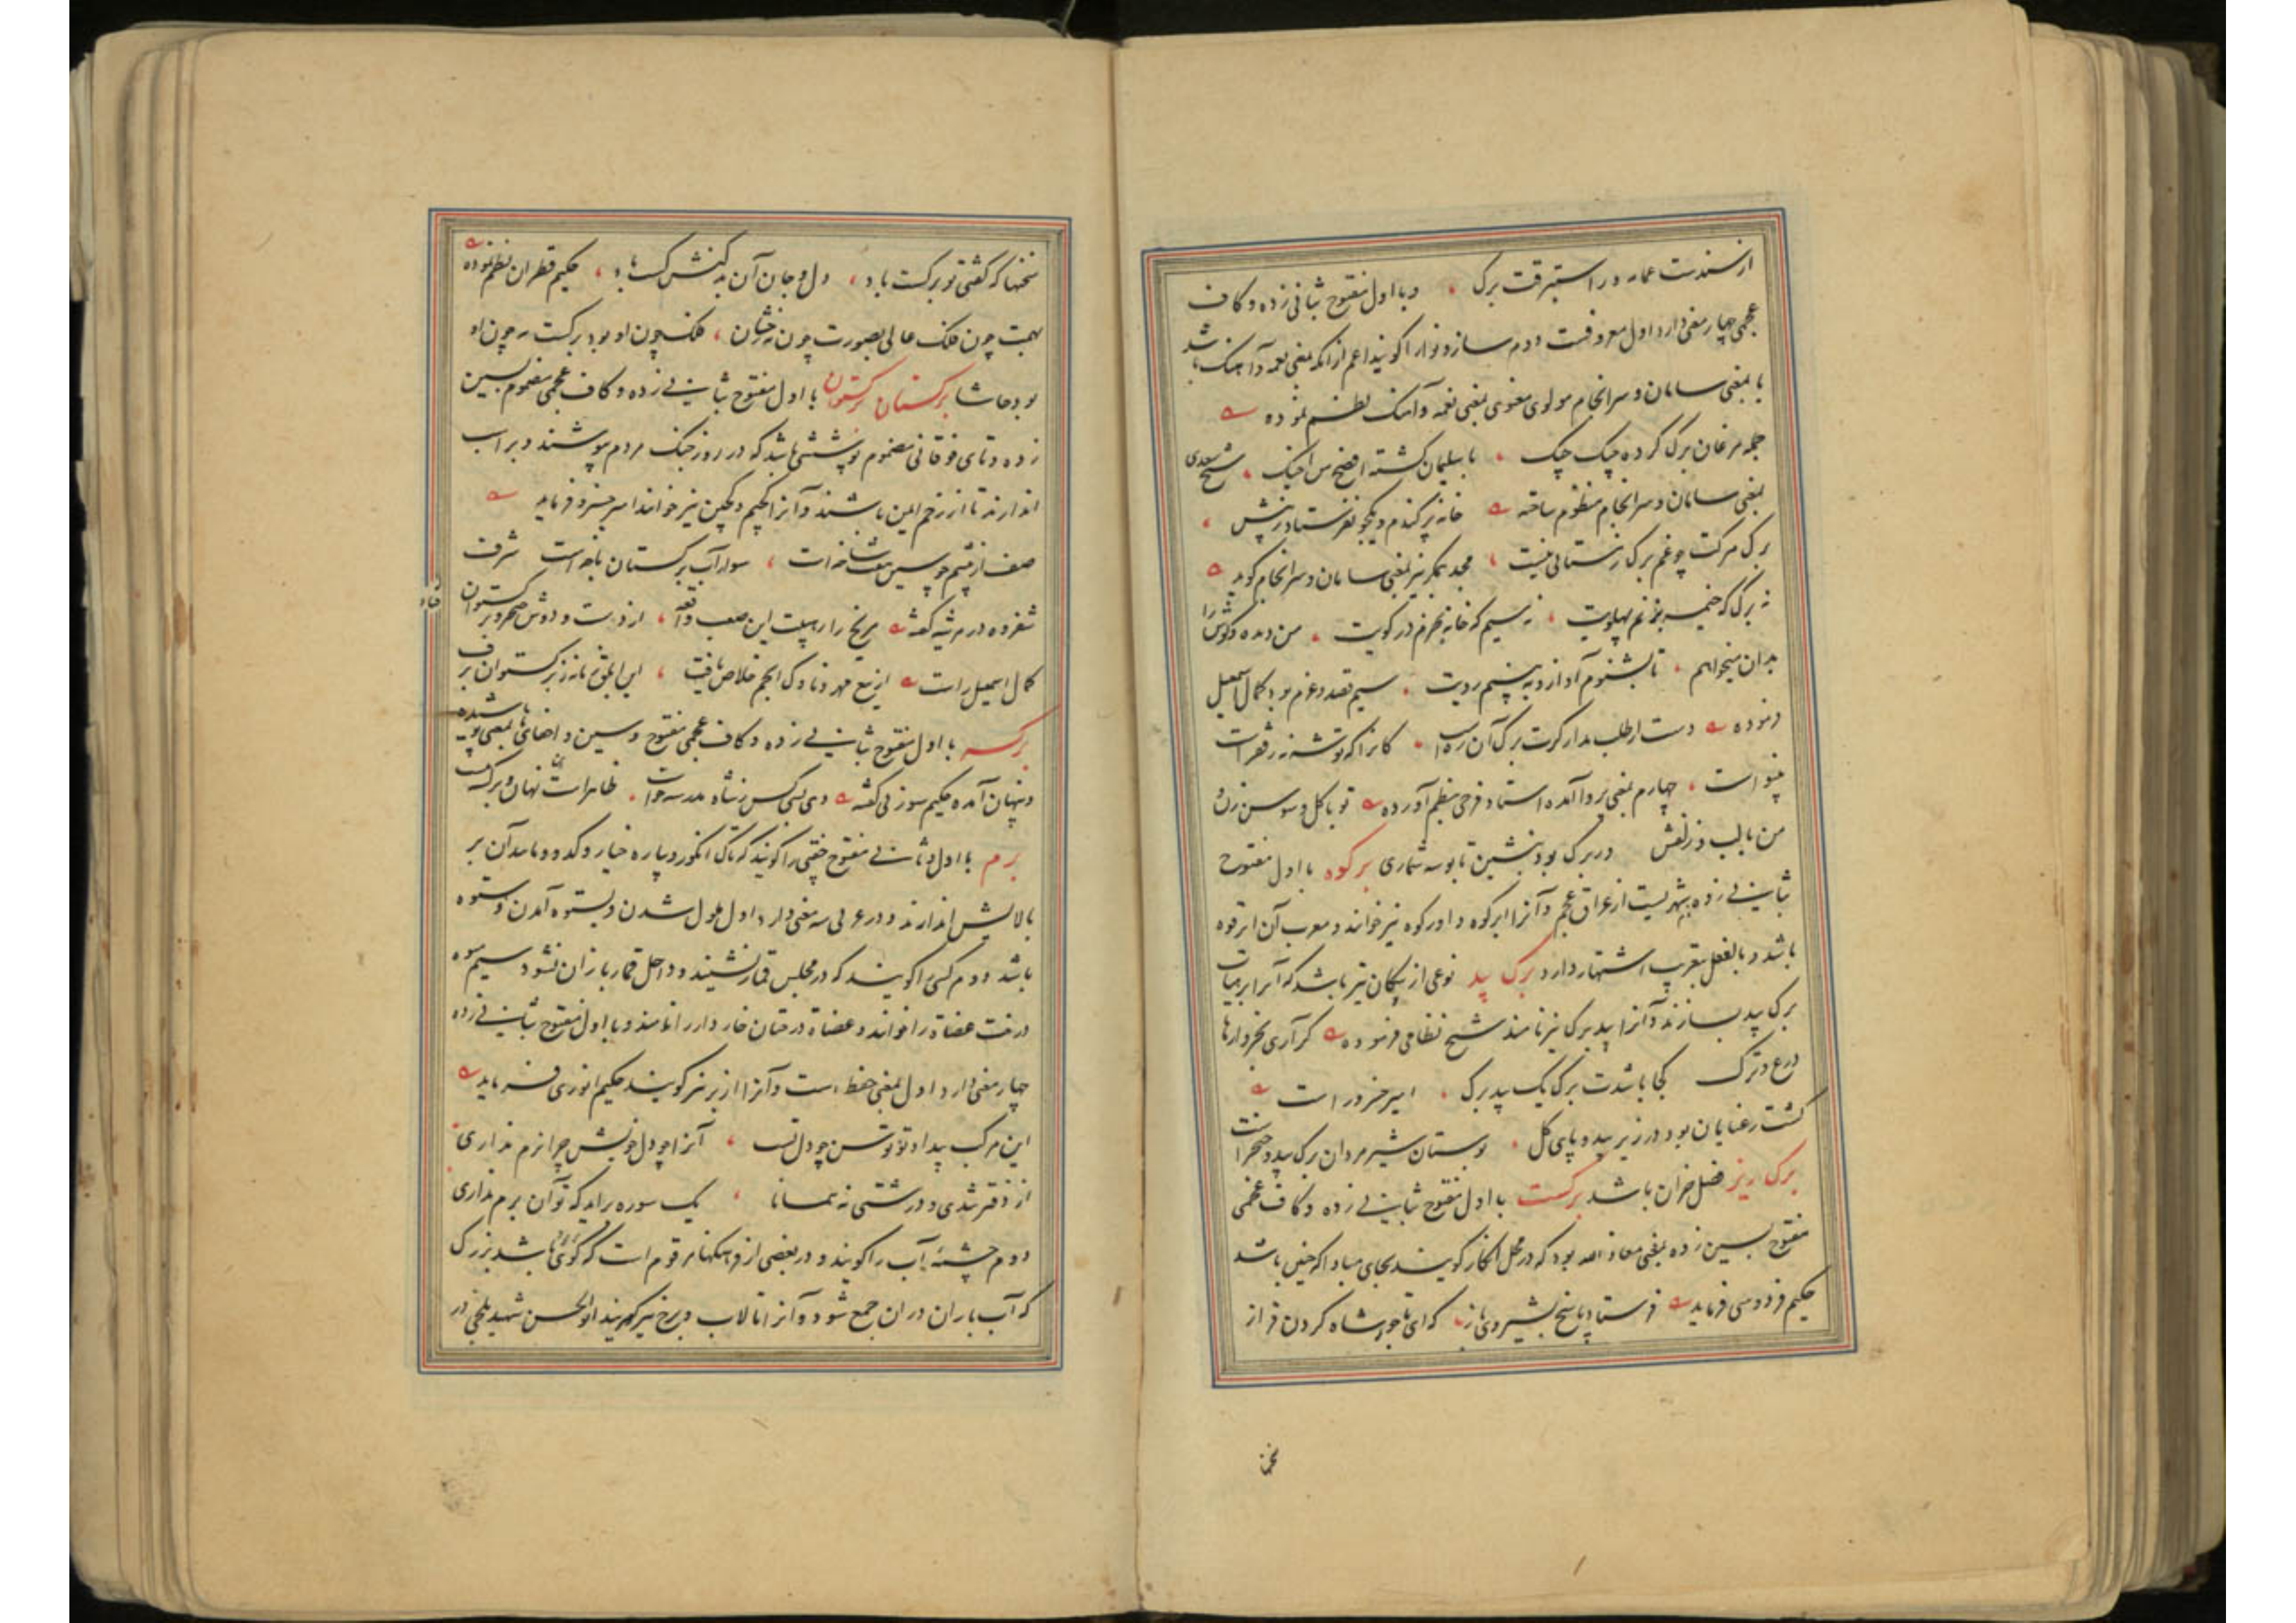 از سندست عمامه در استبرقت برک و با اول مفتوح بثانی زده و کاف
عجمی چهار معنی دارد اول معروفست دوم ساز و نوا را کویند اعم از انکه بمعنی نغمه و آهنک باشد
یا بمعنی سامان و سرانجام مولوی معنوی بمعنی نغمه و آهنک نظم نموده
جمله مرغان برک کرده چیک چیک با سلیمان کشته افصح من اخیک شیخ سعدی
بمعنی سامان و سرانجام منظوم ساخته خانه پر کندم و یکجو نفرستاد زپیش
برک مرکت چو غم برک زمستانی نیست مجد همکر نیز بمعنی سامان و سرانجام کوید
نه برک که خیمه بر زنم پهلویت نه سیم که خانه بخرم در کویت من دیده و کوش را
بدان میخواهم تا بشنوم آواز و به بینم رویت سیم قصد و عزم بود کمال اسمعیل
فرموده دست از طلب مدار کرت برک آن ره است کانرا که توشه زر فقر است
بینوا است چهارم بمعنی پروا آمده استاد فرخی بنظم آورده تو با کل و سوسن زن و
من با لب و زلفش در برک بود بنشین تا بوسه شماری برکوه با اول مفتوح
بثانی زده شهریست از عراق عجم و آنرا ابرکوه و اورکوه نیز خوانند و معرب آن ابرقوه
باشد و بالفعل بتعریب اشتهار دارد برک بید نوعی از پیکان تیر باشد که آنرا بهیات
برک بید سازند و آنرا بید برک نیز نامند شیخ نظامی فرموده کر آری بخروارها
درع و ترک کجا باشدت برک یک بید برک امیر خسرو راست
کشت رعنایان بود در زیر بید و پای کل بوستان شیر مردان برک بید و خنجر است
برک ریز فصل خزان باشد برکست با اول مفتوح بثانی زده و کاف عجمی
مفتوح بسین زده بمعنی معاذ الله بود که در محل انکار کویند بجای مبادا که چنین باشد
حکیم فردوسی فرماید فرستاد پاسخ بشیروی باز که ای تاجور شاه کردن فراز
سخنها که کفتی تو برکست باد دل و جان آن بد کنش کست باد حکیم قطران نظم نموده
بهمت چون فلک عالی بصورت چون مه رخشان فلک چون او بود برکست مه چون او
بود حاشا برکستان برکستوان با اول مفتوح بثانی زده و کاف عجمی مضموم بسین
زده و تای فوقانی مضموم پوششی باشد که در روز جنک مردم پوشند و بر اسب
اندازند تا از زخم ایمن باشند و آنرا کجیم و کجین نیز خوانند امیر خسرو فرماید
صف از سوار آب برکستان شرف
شفروه در مرثیه کفته مریخ را ز هیبت این صعب واقعه از دست و دوش خنجر و برکستوان فتاد
کمال اسمعیل راست از تیغ مهر و ناوک انجم خلاص یافت این ابلق زمانه ز برکستوان برف
برکسه با اول مفتوح بثانی زده و کاف عجمی مفتوح و سین و اخفای ها بمعنی پوشیده
و پنهان آمده حکیم سوزنی کفته
برم با اول و ثانی مفتوح چفتی را کویند که تاک انکور و بیاره خیار و کدو و مانند آن بر
بالایش اندازند و در عربی سه معنی دارد اول ملول شدن و بستوه آمدن و ستوه
باشد دوم کسی را کویند که در مجلس قمار نشیند و داخل قمار بازان نشود سیم میوه
درخت عضاة را خوانند و عضاة درختان خار دار را نامند و با اول مفتوح بثانی زده
چهار معنی دارد اول بمعنی حفظ است و آنرا از بر نیز کویند حکیم انوری فرماید
این مرکب بیداد تو توسن چو دل تست آنرا چو دل خویش چرا نرم نداری
از دفتر تندی و درشتی نه همانا یک سوره برآید که تو آن برم نداری
دوم چشمه آب را کویند و در بعضی از فرهنکها مرقوم است که کوی باشد بزرک
که آب باران در ان جمع شود و آنرا تالاب و برخ نیز کویند ابو الحسن شهید بلخی در
نخها